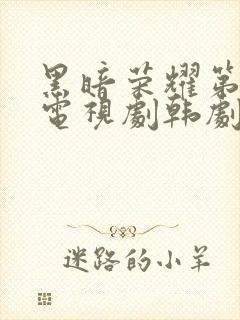 黑暗荣耀第
電視劇韩劇
迷路的小羊